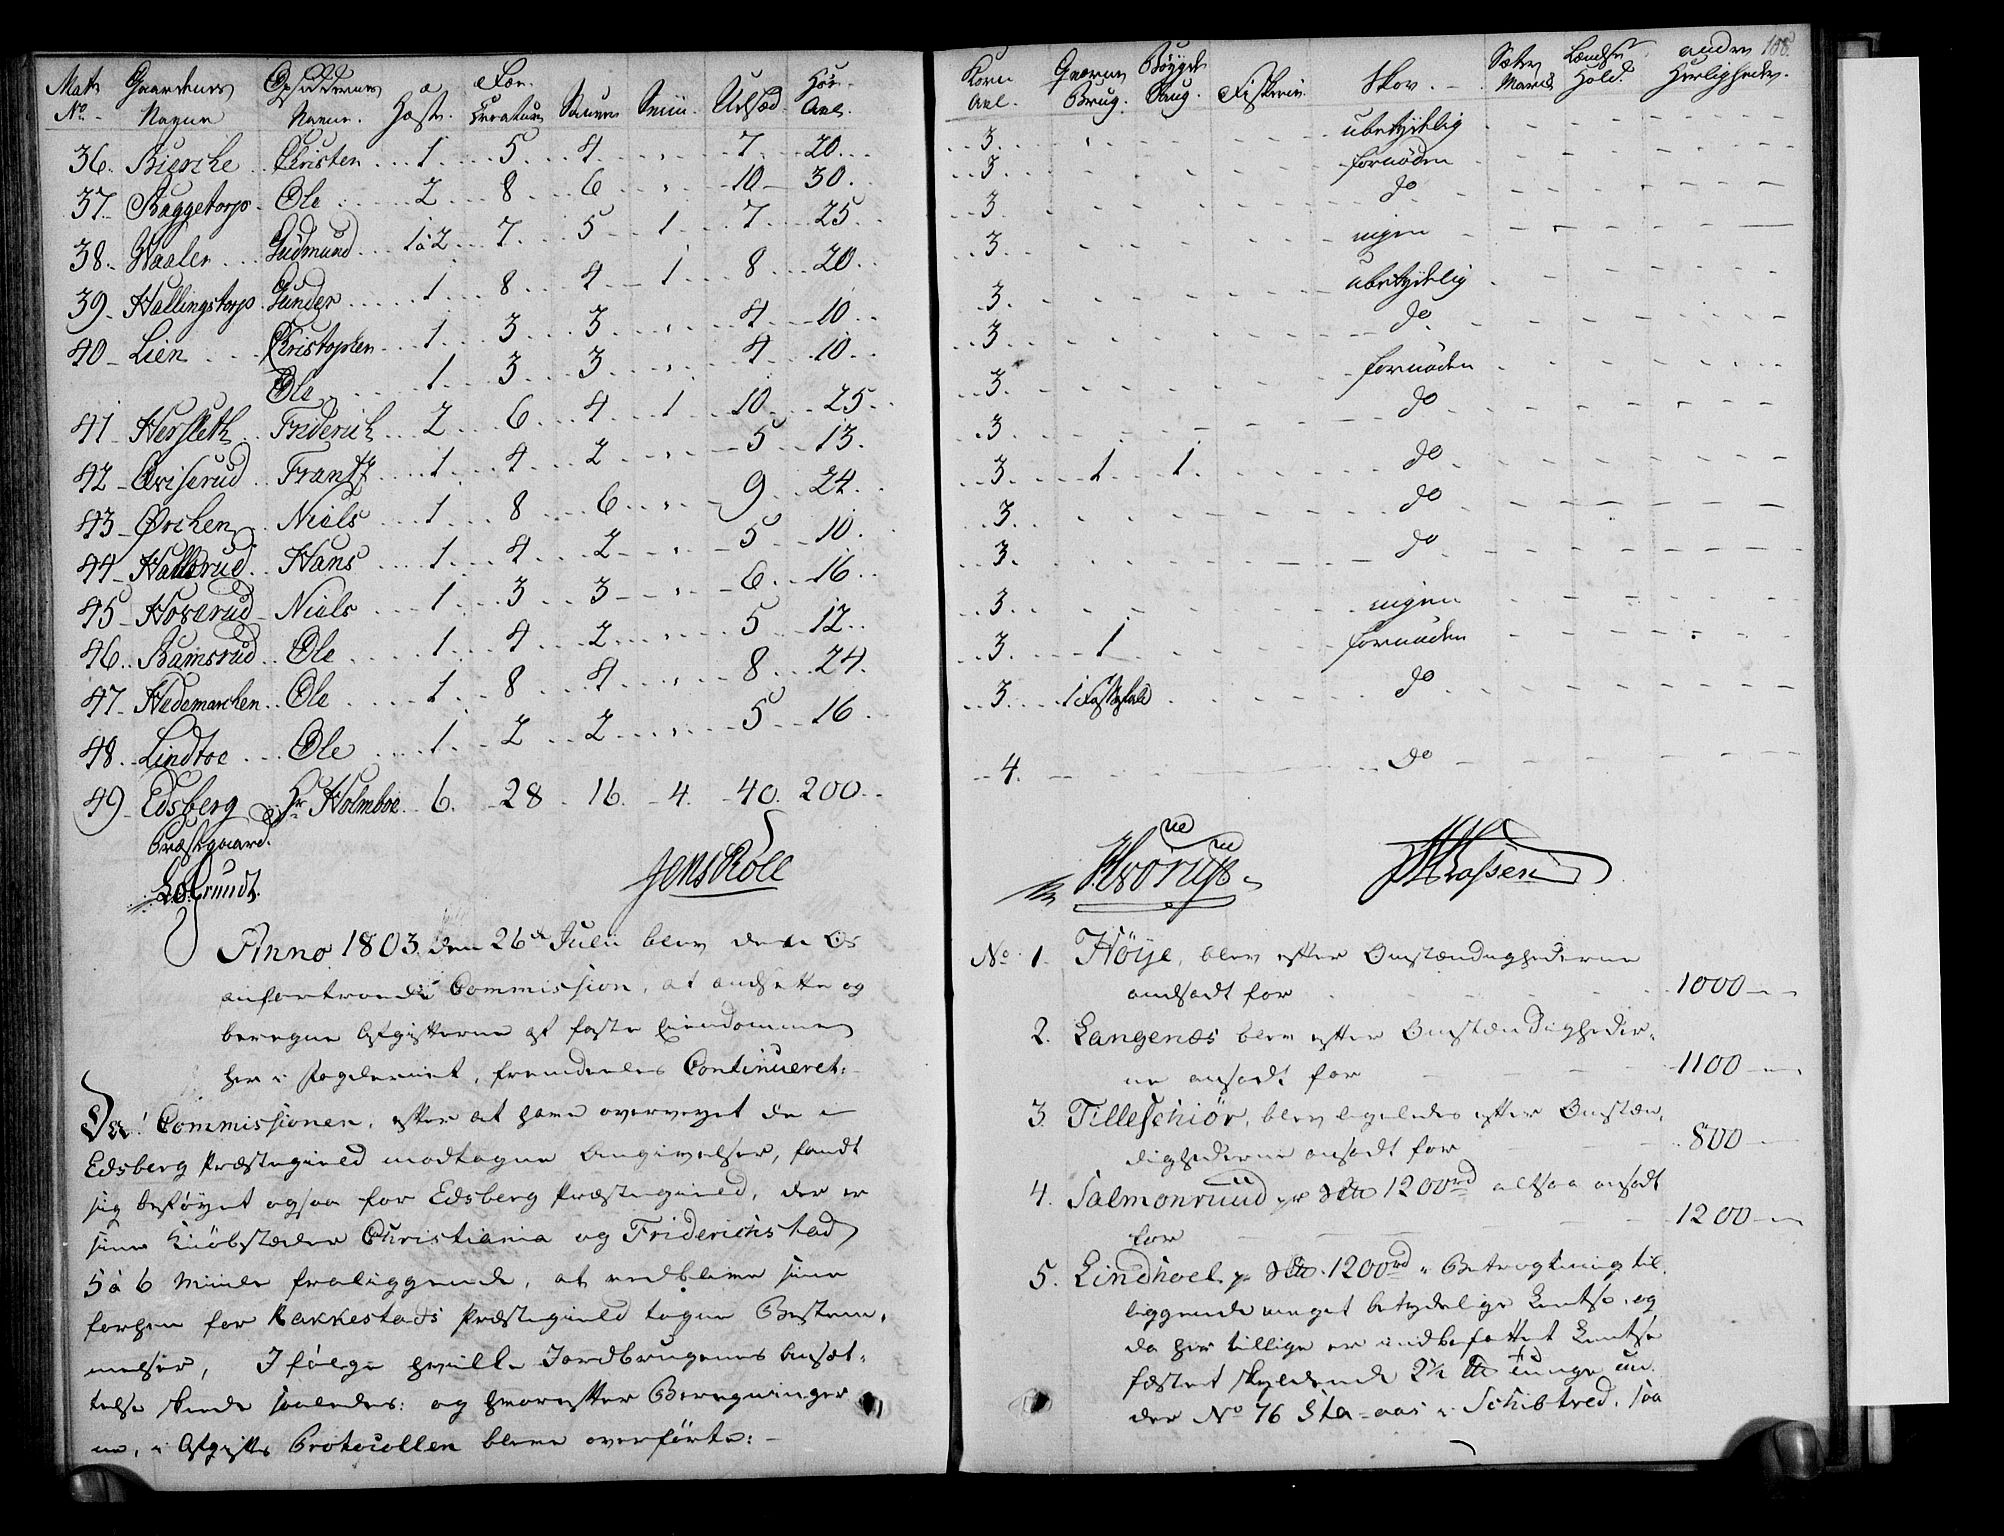 Matr No. Gaardenes Navne Opsiddernes Navne. Hæste. Fæe-Creature Sauer Sviin. Udsæd. Høe-Avl.
36. Bierche Christen 1 5 4 " 7 20
37. Baggetorp Ole 2 8 6 " 10 30
38. Waaler Gudmund 1 à 2 7 5 1 7 25
39. Hallingstorp Gunder 1 8 4 1 8 20
40. Lien Christopher 1 3 3 " 4 10
Ole 1 3 3 " 4 10
41. Hersleth Friderich 2 6 4 1 10 25
42. Qviserud Frantz 1 4 2 " 5 13
43. Ørchen Niels 1 8 6 " 9 24
44. Hallerud Hans 1 4 2 " 5 10
45. Hoverud Niels 1 3 3 " 6 16
46. Bamsrud Ole 1 4 2 " 5 12
47. Hedemarchen Ole 1 8 4 " 8 24
48. Lindtoe Ole 1 2 2 " 5 16
49. Edsberg Hr Holmboe 6. 28 16. 4. 40. 200
Præstgaard.
Grundt. Jens Roll
Anno 1803 den 26de Julii blev den os
anfortroede Commission, at ansætte og
beregne Afgifterne af faste Eiendomme
her i Fogderiet, fremdeeles Continueret:
Da Commissionen, efter at have overveyet de i
Edsberg Præstegield modtagne Angivelser, fandt
sig beføyet ogsaa for Edsberg Præstegield, der er
sine Kiøbstæder Christiania og Friderichstad
5 à 6 Miile fraliggende, at vedblive sine
forhen for Rakkestads Præstegield tagne Bestem-
melser, I følge hvilke Jordbrugenes Ansæt-
telse skeede saaledes: og hvorefter Beregninger-
ne, i Afgifts Protocollen bleve overførte:
108.
Korn Avl. Qværne Brug. Bøygde Saug. Fiskerie. Skov. Sæter Havn Lændse Hold. andre Herligheder.
3. ubetydelig
3. fornøden
3. do
3. ingen
3. ubetydelig
3. do
3. fornøden
3. do
3. 1 1. do
3. do
3. do
3. ingen
3. 1 fornøden
3. 1 do
4. do
No. 1. Höije, blev efter Omstændighederne
ansadt for 1000
2. Langenæs blev efter Omstændigheder-
ne ansadt for 1100
3. Tilleschiör, blev ligeledes efter Omstæn-
dighederne ansadt for 800
4. Salmonruud pr 1200rd altsaa ansadt
for 1200
5. Lindhoel pr 1200rd i Betragtning til-
liggende meget betydelige Lentse, og
da her tillige er indbefattet Lentse
fæstet skyldende 2½ tunge un-
der No 76 i Schibtved, saa